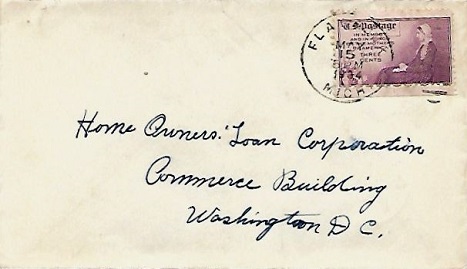 U.S. Postage
IN MEMORY
AND IN HONOR
OF THE MOTHERS
OF AMERICA
THREE
CENTS
MAY
15
PM
1934
MICH.
Home Owners' Loan Corporation
Commerce Building
Washington D C.